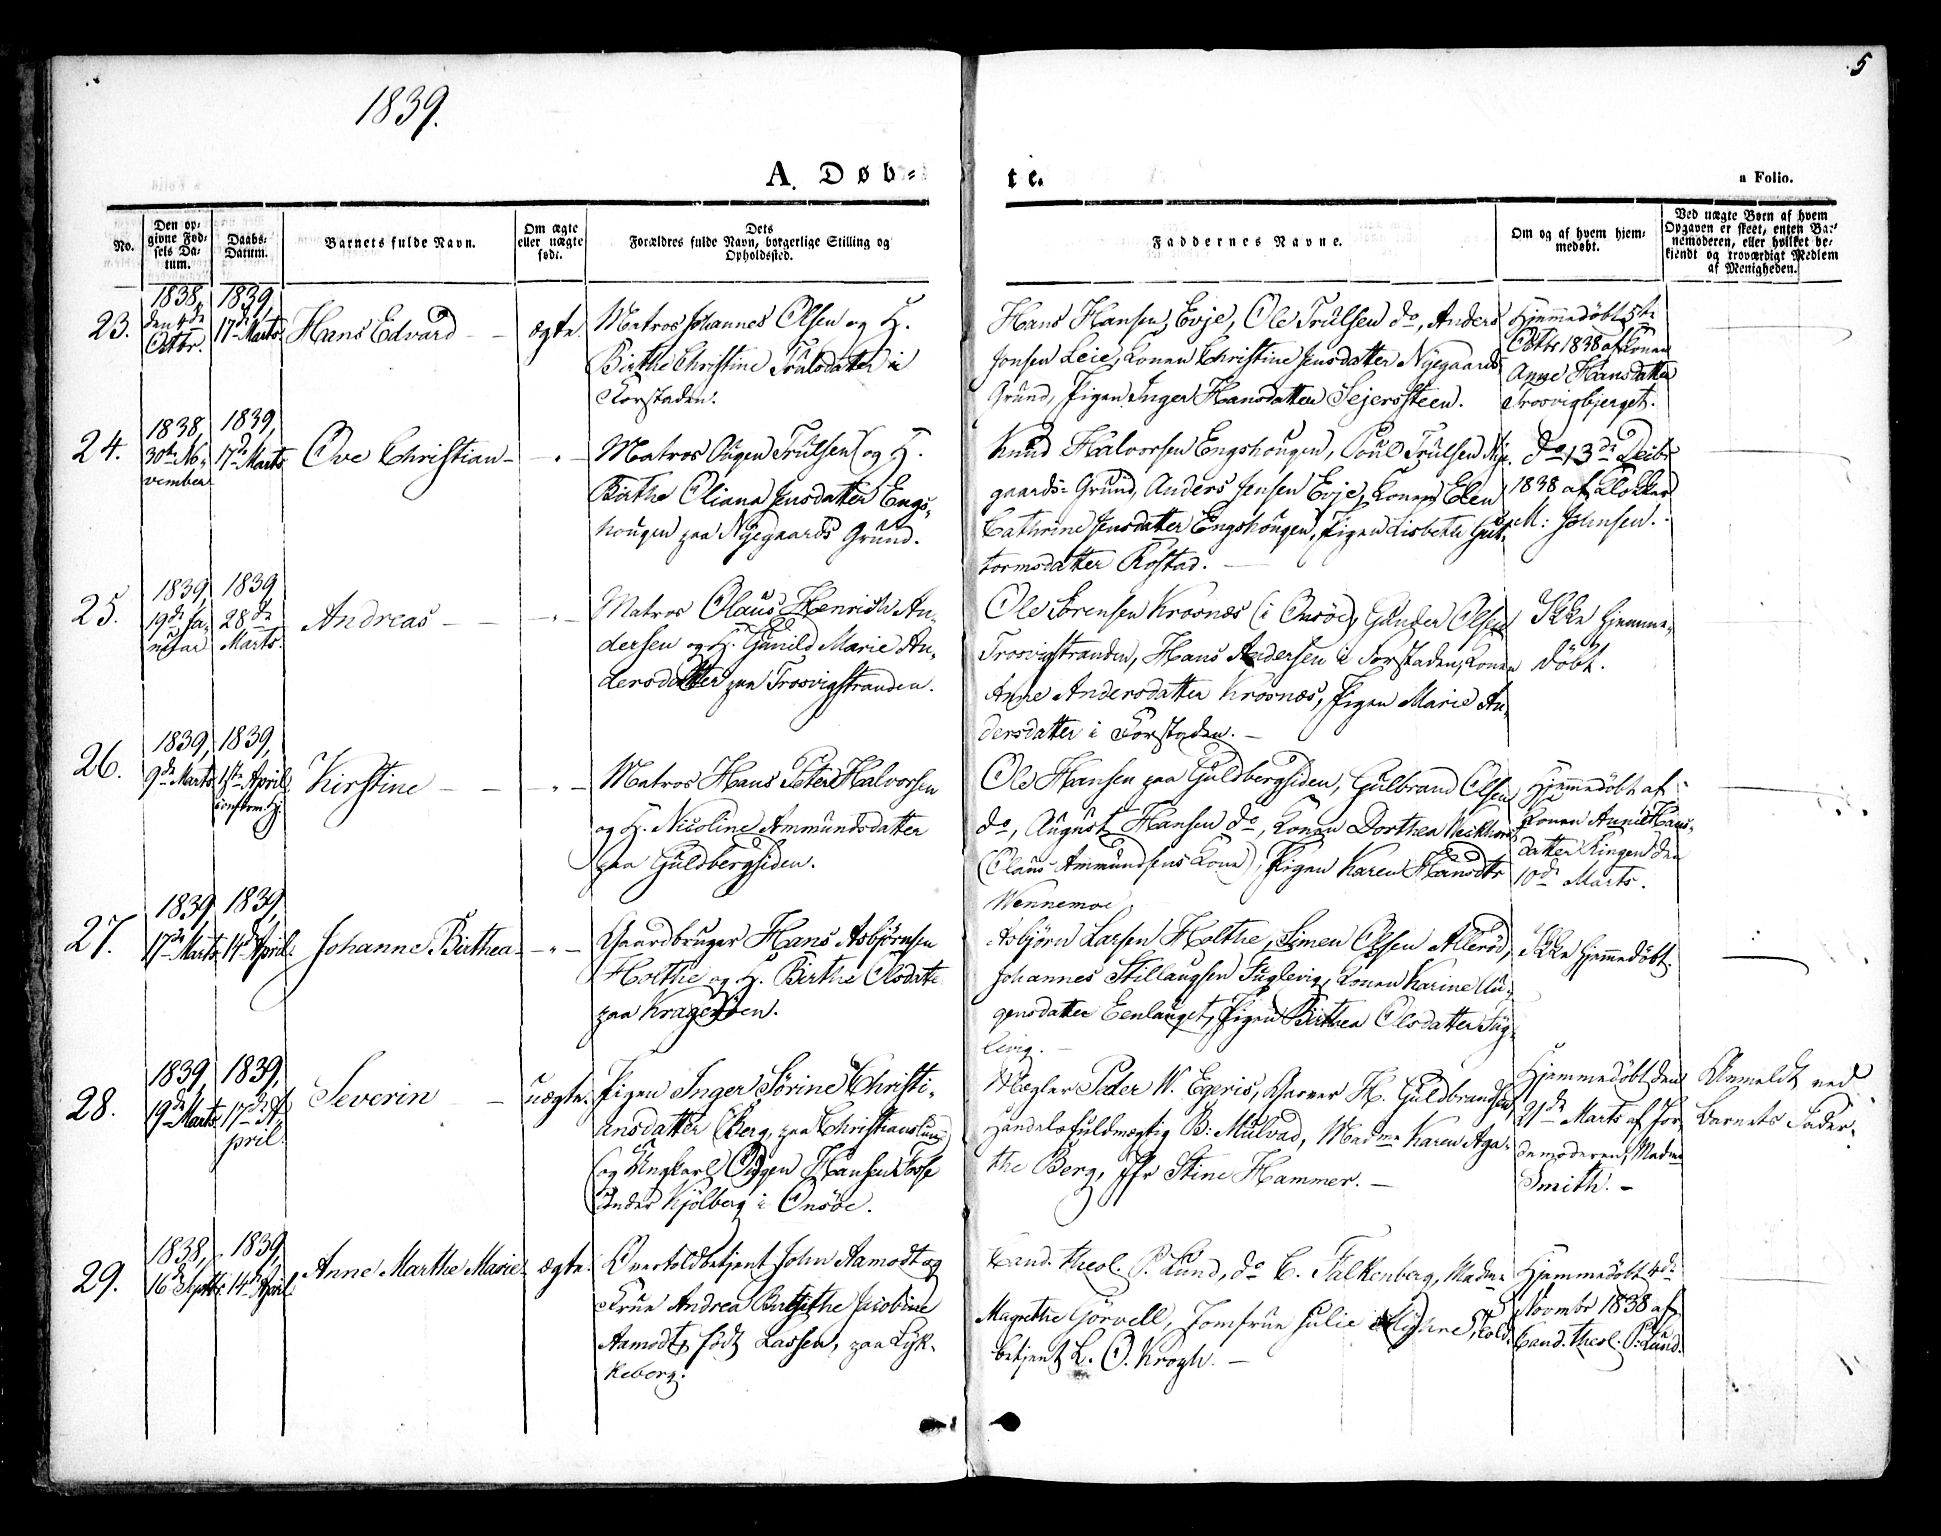 5
1839.
A. Døb=
te.
a Folio.
No.
Den op-
givne Fød-
sels Da-
tum.
Daabs-
Datum.
Barnets fulde Navn.
Om ægte
eller uægte
født.
Dets
Forældres fulde Navn, borgerlige Stilling og
Opholdssted.
Faddernes Navne.
Om og af hvem hjem-
medøbt.
Ved uægte Børn af hvem
Opgaven er skeet, enten Bar-
nemoderen, eller hvilket be-
kjendt og troværdigt Medlem
af Menigheden.
23.
1838,
den 4de
Octbr.
1839,
17de Marts.
Hans Edvard
ægte.
Matros Johannes Olsen og H.
Birthe Christine Trulsdatter i
Forstaden.
Hans Hansen, Evje, Ole Trulsen do, Anders
Jonsen Leie, Konen Christine Jensdatter Nyegaards
Grund, Pigen Inger Hansdatter Sejerssteen.
Hjemmedöbt 5te
Octbr 1838 af Konen
Anne Hansdatter
Trosvigbjerget.
24.
1838,
30te No-
vember
1839,
17de Marts
Ove Christian
-"-
Matros Augen Trulsen og H.
Birthe Oliana Jensdatter Engs-
hougen paa Nyegaards Grund.
Knud Halvorsen Engshougen, Poul Trulsen Nye-
gaards-Grund, Anders Jensen Evje, Konen Elen
Cathrine Jensdatter Engshougen, Pigen Lisbeth Gut-
tormsdatter Rostad.
do 13de Decbr
1838 af Klokker
M: Johnsen.
25.
1839
19de Ja-
nuar
1839
28de
Marts.
Andreas
-"-
Matros Olaus Henrich An-
dersen og H. Gunild Marie An-
dersdatter paa Trosvigstranden.
Ole Sörensen Krosnæs (i Onsöe), Gunder Olsen
Trosvigstranden, Hans Andersen i Forstaden, Konen
Anne Andersdatter Krosnæs, Pigen Marie An-
dersdatter i Forstaden.
Ikke hjemme-
döbt.
26.
1839,
9de Marts
1839,
1ste April
Kirstine
-"-
Matros Hans Peter Halvorsen
og H. Nicoline Ammundsdatter
paa Guldbergsiden.
Ole Hansen paa Guldbergsiden, Gulbrand Olsen
do, August Hansen do, Konen Dorthea
(Olaus Ammundsens Kone), Pigen Karen Hansdtr
Wennemoe.
Hjemmedöbt af
Konen Anne Hans-
datter Ringen den
10de Marts.
27.
1839,
17de Marts
1839,
14de April.
Johanne Birthea
-"-
Gaardbruger Hans Asbjörnsen
Holthe og H. Birthe Olsdatter
paa Krageröen.
Asbjörn Larsen Holthe, Simen Olsen Alleröd,
Johannes Stillaugsen Fuglevig, Konen Karine Au-
gensdatter Eenlauget, Pigen Birthea Olsdatter Fug-
levig.
Ikke hjemmedöbt.
28.
1839,
19de Marts
1839,
17de A-
pril.
Severin
uægte.
Pigen Inger Sörine Christi-
ansdatter Berg, paa Christianslund
og Ungkarl Augen Hansen Torp
under Kjölberg i Onsöe.
Mægler Peder W. Egeris, Garver H. Guldbrandsen,
Handelsfuldmægtig B: Mulvad, Madme Karen Aga-
the Berg, Jfr Stine Hammer.
Hjemmedöbt den
21de Marts af Jor-
demoderen, Madme
Smith.
Anmeldt ved
Barnets Fader.
29.
1838,
16de Septbr.
1839,
14de April.
Anne Marthe Marie
ægte.
Overtoldbetjent John Aamodt og
Frue Andrea Birgithe Jacobine
Aamodt, födt Lassen, paa Lyk-
keborg.
Cand. theol. P. Lund, do C. Falkenberg, Madme
Magrethe Görvell, Jomfrue Julie Told-
betjent L. O. Krogh.
Hjemmedöbt 4de
Novmbr 1838 af
Cand. theol. P. Lund.